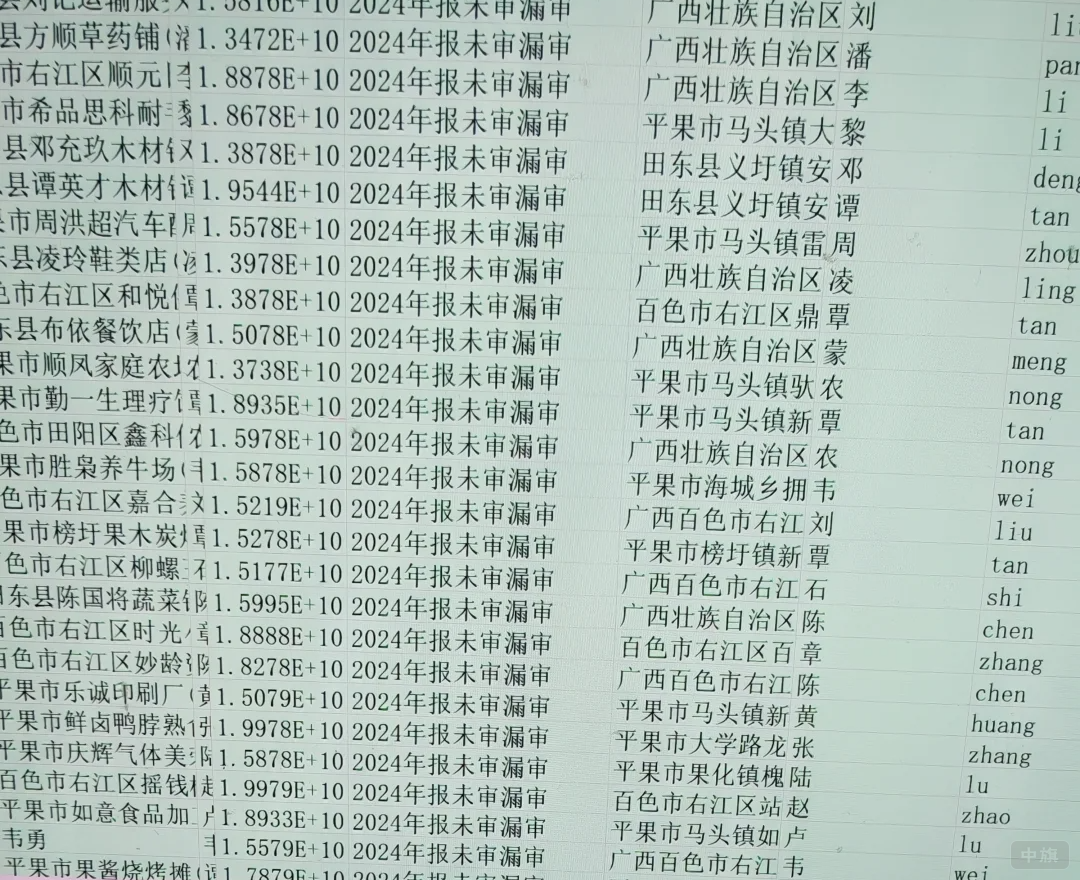 1.5816E+10 2024年报未审漏审 广西壮族自治区 刘
县方顺草药铺( 1.3472E+10 2024年报未审漏审 广西壮族自治区 潘 pan
市右江区顺元 李 1.8878E+10 2024年报未审漏审 广西壮族自治区 李 li
市希品思科耐 黎 1.8678E+10 2024年报未审漏审 平果市马头镇大 黎 li
县邓充玖木材 1.3878E+10 2024年报未审漏审 田东县义圩镇安 邓 deng
县谭英才木材 1.9544E+10 2024年报未审漏审 田东县义圩镇安 谭 tan
市周洪超汽车 周 1.5578E+10 2024年报未审漏审 平果市马头镇雷 周 zhou
县凌玲鞋类店( 1.3978E+10 2024年报未审漏审 广西壮族自治区 凌 ling
色市右江区和悦 覃 1.3878E+10 2024年报未审漏审 百色市右江区鼎 覃 tan
东县布依餐饮店( 1.5078E+10 2024年报未审漏审 广西壮族自治区 蒙 meng
果市顺凤家庭农 农 1.3738E+10 2024年报未审漏审 平果市马头镇驮 农 nong
果市勤一生理疗 覃 1.8935E+10 2024年报未审漏审 平果市马头镇新 覃 tan
色市田阳区鑫科 农 1.5978E+10 2024年报未审漏审 广西壮族自治区 农 nong
果市胜枭养牛场( 1.5878E+10 2024年报未审漏审 平果市海城乡拥 韦 wei
色市右江区嘉合 1.5219E+10 2024年报未审漏审 广西百色市右江 刘 liu
果市榜圩果木炭 覃 1.5278E+10 2024年报未审漏审 平果市榜圩镇新 覃 tan
色市右江区柳螺 石 1.5177E+10 2024年报未审漏审 广西百色市右江 石 shi
田东县陈国将蔬菜 陈 1.5995E+10 2024年报未审漏审 广西壮族自治区 陈 chen
百色市右江区时光 章 1.8888E+10 2024年报未审漏审 百色市右江区百 章 zhang
百色市右江区妙龄 陈 1.8278E+10 2024年报未审漏审 广西百色市右江 陈 chen
平果市乐诚印刷厂( 1.5079E+10 2024年报未审漏审 平果市马头镇新 黄 huang
平果市鲜卤鸭脖熟 张 1.9978E+10 2024年报未审漏审 平果市大学路龙 张 zhang
平果市庆辉气体美 陆 1.5878E+10 2024年报未审漏审 平果市果化镇槐 陆 lu
百色市右江区摇钱 1.9979E+10 2024年报未审漏审 百色市右江区站 赵 zhao
平果市如意食品加 卢 1.8933E+10 2024年报未审漏审 平果市马头镇如 卢 lu
韦勇 1.5579E+10 2024年报未审漏审 广西百色市右江 韦 wei
平果市果酱烧烤摊( 1.7879E+10
中旗